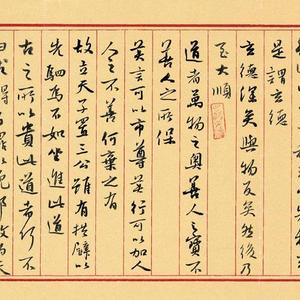 是謂玄德
玄德深矣與物反矣然後乃
至大順
道者萬物之奧善人之寶不
善人之所保
美言可以市尊美行可以加人
人之不善何棄之有
故立天子置三公雖有拱璧以
先駟馬不如坐進此道
古之所以貴此道者何不
曰求得有罪以免邪故為天